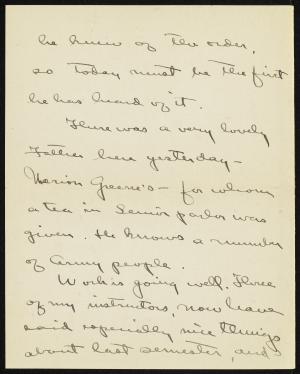 he knew of the order,
so today must be the first
he has heard of it.
There was a very lovely
Father here yesterday –
Marion Greene's – for whom
a tea in Senior parlor was
given. He knows a number
of Army people.
Work is going well. Three
of my instructors, now have
said especially nice things
about last semester, and